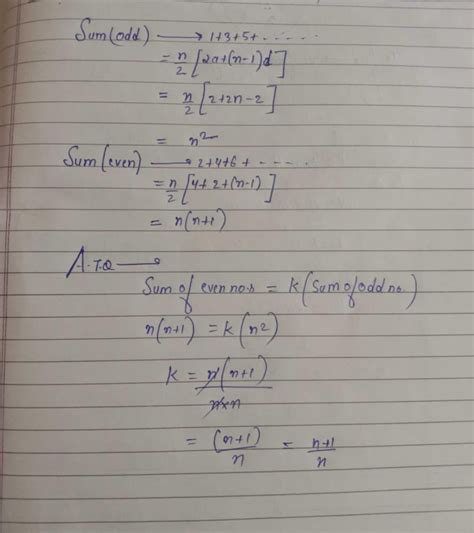 Sum(odd) → 1+3+5+ . . . . .
= n/2 [2a+(n-1)d]
= n/2 [2+2n-2]
= n²
Sum(even) → 2+4+6+ . . . . .
= n/2 [4+2+(n-1)]
= n(n+1)
A.T.Q →
Sum of even no.s = k(Sum of odd no.)
n(n+1) = k(n²)
k = n(n+1)/n×n
= (n+1)/n = n+1/n